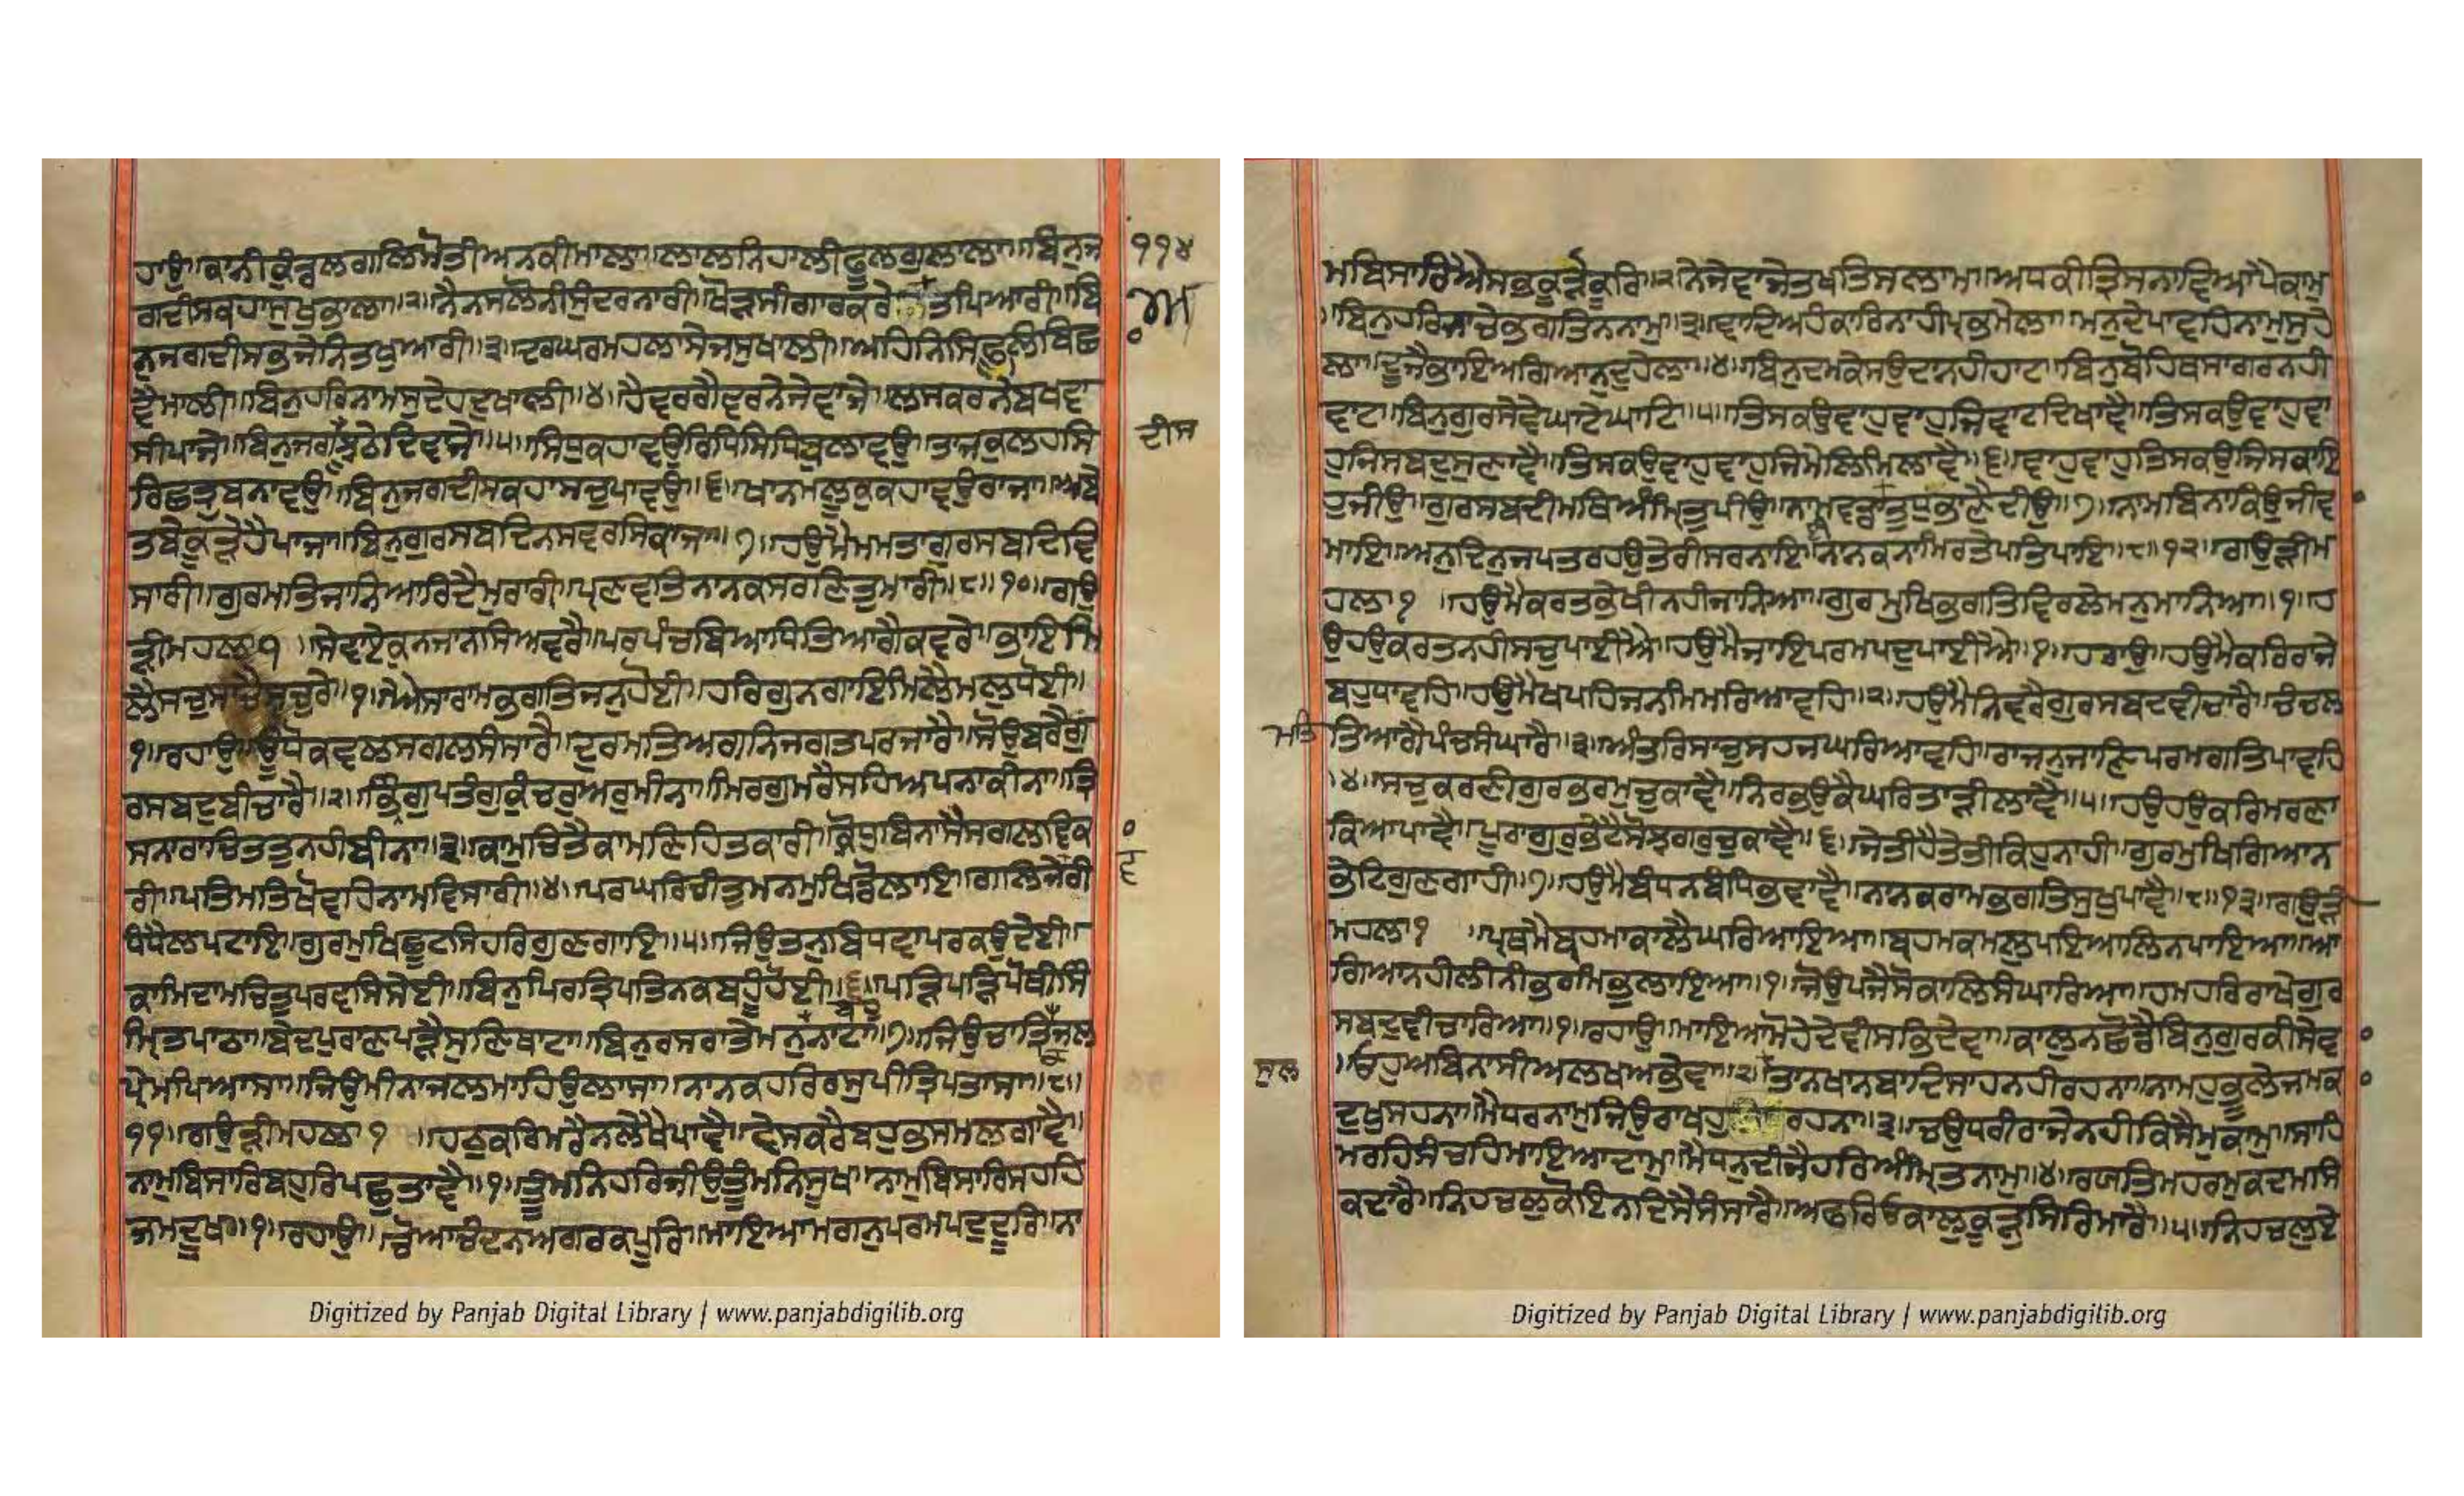 ਹਾਉ॥ਕਾਨੀਕੁੰਡਲਗਲਿਮੋਤੀਅਨਕੀਮਾਲਾ॥ਲਾਲਨਿਹਾਲੀਫੂਲਗੁਲਾਲਾ॥ਬਿਨੁਜ
੧੧੪
ਗਦੀਸਕਹਾਸੁਖੁਭਾਲਾ॥੨॥ਨੈਨਸਲੋਨੀਸੁੰਦਰਨਾਰੀ॥ਖੋੜਸੀਗਾਰਕਰੇਤਿਪਿਆਰੀ॥ਬਿ
ਨੁਜਗਦੀਸਭਜੇਨਿਤਖੁਆਰੀ॥੩॥ਦਰਘਰਮਹਲਾਸੇਜਸੁਖਾਲੀ॥ਅਹਿਨਿਸਿਫੂਲਿਬਿਛ
ਵੈਮਾਲੀ॥ਬਿਨੁਹਰਿਨਾਮਸੁਦੇਹਦੁਖਾਲੀ॥੪॥ਹੈਵਰਗੈਵਰਨੇਜੇਵਾਜੇ॥ਲਸਕਰਨੇਬਖਵਾ
ਸੀਪਾਜੇ॥ਬਿਨੁਜਗਝੂਠੇਦਿਵਾਜੇ॥੫॥ਸਿਧੁਕਹਾਵਉਰਿਧਿਸਿਧਿਬੁਲਾਵਉ॥ਤਾਜਕੁਲਹਸਿ
ਦੀਸ
ਰਿਛਤ੍ਰੁਬਨਾਵਉ॥ਬਿਨੁਜਗਦੀਸਕਹਾਸਚੁਪਾਵਉ॥੬॥ਖਾਨਮਲੂਕੁਕਹਾਵਉਰਾਜਾ॥ਅਬੇ
ਤਬੇਕੂੜੇਹੈਪਾਜਾ॥ਬਿਨੁਗੁਰਸਬਦਿਨਸਵਰਸਿਕਾਜਾ॥੭॥ਹਉਮੈਮਮਤਾਗੁਰਸਬਦਿਵਿ
ਸਾਰੀ॥ਗੁਰਮਤਿਜਾਨਿਆਰਿਦੈਮੁਰਾਰੀ॥ਪ੍ਰਣਵਤਿਨਾਨਕਸਰਣਿਤੁਮਾਰੀ॥੮॥੧੦॥ਗਉ
ੜੀਮਹਲਾ੧॥ਸੇਵਾਏਕਨਜਾਨਸਿਅਵਰੈ॥ਪਰਪੰਚਬਿਆਧਿਤਿਆਗੈਕਵਰੇ॥ਭਾਇਮਿ
ਲੈਸਚੁਸਾਚੈਸਚੁਰੇ॥੧॥ਐਸਾਰਾਮਭਗਤਿਜਨੁਹੋਈ॥ਹਰਿਗੁਨਗਾਇਮਿਲੈਮਲੁਧੋਈ॥
੧॥ਰਹਾਉ॥ਊਂਧੋਕਵਲਸਗਲਸੰਸਾਰੈ॥ਦੁਰਮਤਿਅਗਨਿਜਗਤਪਰਜਾਰੈ॥ਸੋਉਬਰੈਗੁ
ਰਸਬਦੁਬੀਚਾਰੈ॥੨॥ਭ੍ਰਿੰਗੁਪਤੰਗੁਕੁੰਚਰੁਅਰੁਮੀਨਾ॥ਮਿਰਗੁਮਰੈਸਹਿਅਪਨਾਕੀਨਾ॥ਤ੍ਰਿ
ਸਨਾਰਾਚਿਤਤੁਨਹੀਬੀਨਾ॥੩॥ਕਾਮੁਚਿਤੈਕਾਮਣਿਹਿਤਕਾਰੀ॥ਕ੍ਰੋਧੁਬਿਨਾਸੈਸਗਲਵਿਕ
ਰੀ॥ਪਤਿਮਤਿਖੋਵਹਿਨਾਮਵਿਸਾਰੀ॥੪॥ਪਰਘਰਿਚੀਤੁਮਨਮੁਖਿਡੋਲਾਇ॥ਗਲਿਜੇਵੀ
ਧੰਧੈਲਪਟਾਇ॥ਗੁਰਮੁਖਿਛੂਟਸਿਹਰਿਗੁਣਗਾਇ॥੫॥ਜਿਉਤਨੁਬਿਧਵਾਪਰਕਉਦੇਈ॥
ਕਾਮਿਦਾਮਚਿਤੁਪਰਵਸਿਸੇਈ॥ਬਿਨੁਪਿਰਤ੍ਰਿਪਤਿਨਕਬਹੂੰਹੋਈ॥੬॥ਪੜਿਪੜਿਪੋਥੀਸਿੰ
ਮ੍ਰਿਤਪਾਠਾ॥ਬੇਦਪੁਰਾਣਪੜੈਸੁਣਿਥਾਟਾ॥ਬਿਨੁਰਸਰਾਤੇਮਨੁਨਾਟਾ॥੭॥ਜਿਉਚਾਤ੍ਰਿਜਲ
ਪ੍ਰੇਮਪਿਆਸਾ॥ਜਿਉਮੀਨਾਜਲਮਾਹਿਉਲਾਸਾ॥ਨਾਨਕਹਰਿਰਸੁਪੀਤ੍ਰਿਪਤਾਸਾ॥੮॥
੧੧॥ਗਉੜੀਮਹਲਾ੧॥ਹਠੁਕਰਿਮਰੈਨਲੇਖੈਪਾਵੈ॥ਵੇਸਕਰੈਬਹੁਭਸਮਲਗਾਵੈ॥
ਨਾਮੁਬਿਸਾਰਿਬਹੁਰਿਪਛੁਤਾਵੈ॥੧॥ਤੂੰਮਨਿਹਰਿਜੀਉਤੂੰਮਨਿਸੂਖ॥ਨਾਮੁਬਿਸਾਰਿਸਹਹਿ
ਜਮਦੂਖ॥੧॥ਰਹਾਉ॥ਚੋਆਚੰਦਨਅਗਰਕਪੂਰਿ॥ਮਾਇਆਮਗਨੁਪਰਮਪਦੁਦੂਰਿ॥ਨਾ
ਮਬਿਸਾਰਿਐਸਭਕੂੜੋਕੂਰਿ॥੨ਨੇਜੇਵਾਜੇਤਖਤਿਸਲਾਮ॥ਅਧਕੀਤ੍ਰਿਸਨਾਵਿਆਪੈਕਾਮੁ
॥ਬਿਨੁਹਰਿਜਾਚੇਭਗਤਿਨਨਾਮੁ॥੩॥ਵਾਦਿਅਹੰਕਾਰਿਨਾਹੀਪ੍ਰਭਮੇਲਾ॥ਮਨੁਦੇਪਾਵਹਿਨਾਮੁਸੁਹੇ
ਲਾ॥ਦੂਜੈਭਾਇਅਗਿਆਨੁਦੁਹੇਲਾ॥੪॥ਬਿਨੁਦਮਕੇਸਉਦਾਨਹੀਹਾਟ॥ਬਿਨੁਬੋਹਿਥਸਾਗਰਨਹੀ
ਵਾਟ॥ਬਿਨੁਗੁਰਸੇਵੇਘਾਟੇਘਾਟਿ॥੫॥ਤਿਸਕਉਵਾਹੁਵਾਹੁਜਿਵਾਟਦਿਖਾਵੈ॥ਤਿਸਕਉਵਾਹੁਵਾ
ਹੁਜਿਸਬਦੁਸੁਣਾਵੈ॥ਤਿਸਕਉਵਾਹੁਵਾਹੁਜਿਮੇਲਿਮਿਲਾਵੈ॥੬॥ਵਾਹੁਵਾਹੁਤਿਸਕਉਜਿਸਕਾਇ
ਹੁਜੀਉ॥ਗੁਰਸਬਦੀਮਥਿਅੰਮ੍ਰਿਤੁਪੀਉ॥ਨਾਮਵਡਾਤੁਧੁਭਾਣੈਦੀਉ॥੭॥ਨਾਮਬਿਨਾਕਿਉਜੀਵ
ਮਾਇ॥ਅਨੁਦਿਨੁਜਪਤਰਹਉਤੇਰੀਸਰਨਾਇ॥ਨਾਨਕਨਾਮਿਰਤੇਪਤਿਪਾਇ॥੮॥੧੨॥ਗਉੜੀਮ
ਹਲਾ੧॥ਹਉਮੈਕਰਤਭੇਖੀਨਹੀਜਾਨਿਆ॥ਗੁਰਮੁਖਿਭਗਤਿਵਿਰਲੇਮਨੁਮਾਨਿਆ॥੧॥ਹ
ਉਹਉਕਰਤਨਹੀਸਚੁਪਾਈਐ॥ਹਉਮੈਜਾਇਪਰਮਪਦੁਪਾਈਐ॥੧॥ਰਹਾਉ॥ਹਉਮੈਕਰਿਰਾਜੇ
ਬਹੁਧਾਵਹਿ॥ਹਉਮੈਖਪਹਿਜਨਮਿਮਰਿਆਵਹਿ॥੨॥ਹਉਮੈਨਿਵਰੈਗੁਰਸਬਦਵੀਚਾਰੈ॥ਚੰਚਲ
ਮਤਿ
ਤਿਆਗੈਪੰਚਸੰਘਾਰੈ॥੩॥ਅੰਤਰਿਸਾਚੁਸਹਜਘਰਿਆਵਹਿ॥ਰਾਜਨੁਜਾਣਿਪਰਮਗਤਿਪਾਵਹਿ
॥੪॥ਸਚੁਕਰਣੀਗੁਰਭਰਮੁਚੁਕਾਵੈ॥ਨਿਰਭਉਕੈਘਰਿਤਾੜੀਲਾਵੈ॥੫॥ਹਉਹਉਕਰਿਮਰਣਾ
ਕਿਆਪਾਵੈ॥ਪੂਰਾਗੁਰੁਭੇਟੇਸੋਝਗਰੁਚੁਕਾਵੈ॥੬॥ਜੇਤੀਹੈਤੇਤੀਕਿਹੁਨਾਹੀ॥ਗੁਰਮੁਖਿਗਿਆਨ
ਭੇਟਿਗੁਣਗਾਹੀ॥੭॥ਹਉਮੈਬੰਧਨਬੰਧਿਭਵਾਵੈ॥ਨਾਨਕਰਾਮਭਗਤਿਸੁਖੁਪਾਵੈ॥੮॥੧੩॥ਗਉੜੀ
ਮਹਲਾ੧॥ਪ੍ਰਥਮੈਬ੍ਰਹਮਾਕਾਲੈਘਰਿਆਇਆ॥ਬ੍ਰਹਮਕਮਲੁਪਇਆਲਿਨਪਾਇਆ॥ਆ
ਗਿਆਨਹੀਲੀਨੀਭਰਮਿਭੁਲਾਇਆ॥੧॥ਜੋਉਪਜੈਸੋਕਾਲਿਸੰਘਾਰਿਆ॥ਹਮਹਰਿਰਾਖੇਗੁਰ
ਸਬਦੁਵੀਚਾਰਿਆ॥੧॥ਰਹਾਉ॥ਮਾਇਆਮੋਹੇਦੇਵੀਸਭਿਦੇਵਾ॥ਕਾਲੁਨਛੋਡੈਬਿਨੁਗੁਰਕੀਸੇਵ
॥ਓਹੁਅਬਿਨਾਸੀਅਲਖਅਭੇਵਾ॥੨॥ਤਾਨਖਾਨਬਾਦਿਸਾਹਨਹੀਰਹਨਾ॥ਨਾਮਹੁਭੂਲੇਜਮਕ
ਸੁਲ
ਦੁਖੁਸਹਨਾ॥ਮੈਧਰਨਾਮੁਜਿਉਰਾਖਹੁਰਹਨਾ॥੩॥ਚਉਧਰੀਰਾਜੇਨਹੀਕਿਸੈਮੁਕਾਮੁ॥ਸਾਹਿ
ਮਰਹਿਸੰਚਹਿਮਾਇਆਦਾਮ॥ਮੈਧਨੁਦੀਜੈਹਰਿਅੰਮ੍ਰਿਤਨਾਮੁ॥੪॥ਰਯਤਿਮਹਰਮੁਕਦਮਸਿ
ਕਦਾਰੈ॥ਨਿਹਚਲੁਕੋਇਨਦਿਸੈਸੰਸਾਰੈ॥ਅਫਰਿਉਕਾਲੁਕੂੜੁਸਿਰਿਮਾਰੈ॥੫॥ਨਿਹਚਲੁਏ
Digitized by Panjab Digital Library | www.panjabdigilib.org
Digitized by Panjab Digital Library | www.panjabdigilib.org